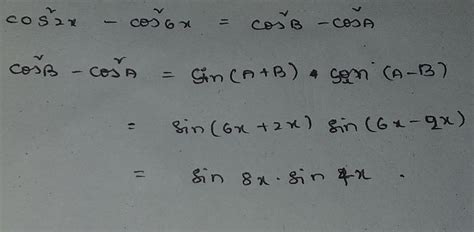 cos²2x - cos²6x = cos²B - cos²A
cos²B - cos²A = Sin(A+B) • Sin (A-B)
= Sin(6x+2x) Sin(6x-2x)
= Sin 8x · Sin 4x .